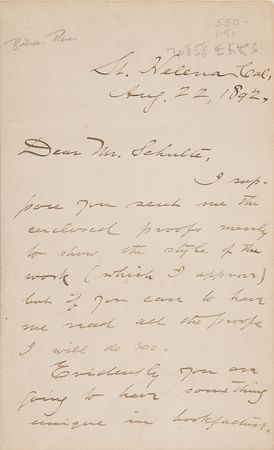 550-
Bierce.
St. Helena, Cal,
Aug. 22, 1892.
Dear Mr. Schulte,
I sup-
pose you sent me the
enclosed proofs merely
to show the style of the
work (which I approve)
but if you care to have
me read all the proofs
I will do so.
Evidently you are
going to have something
unique in bookfacture.